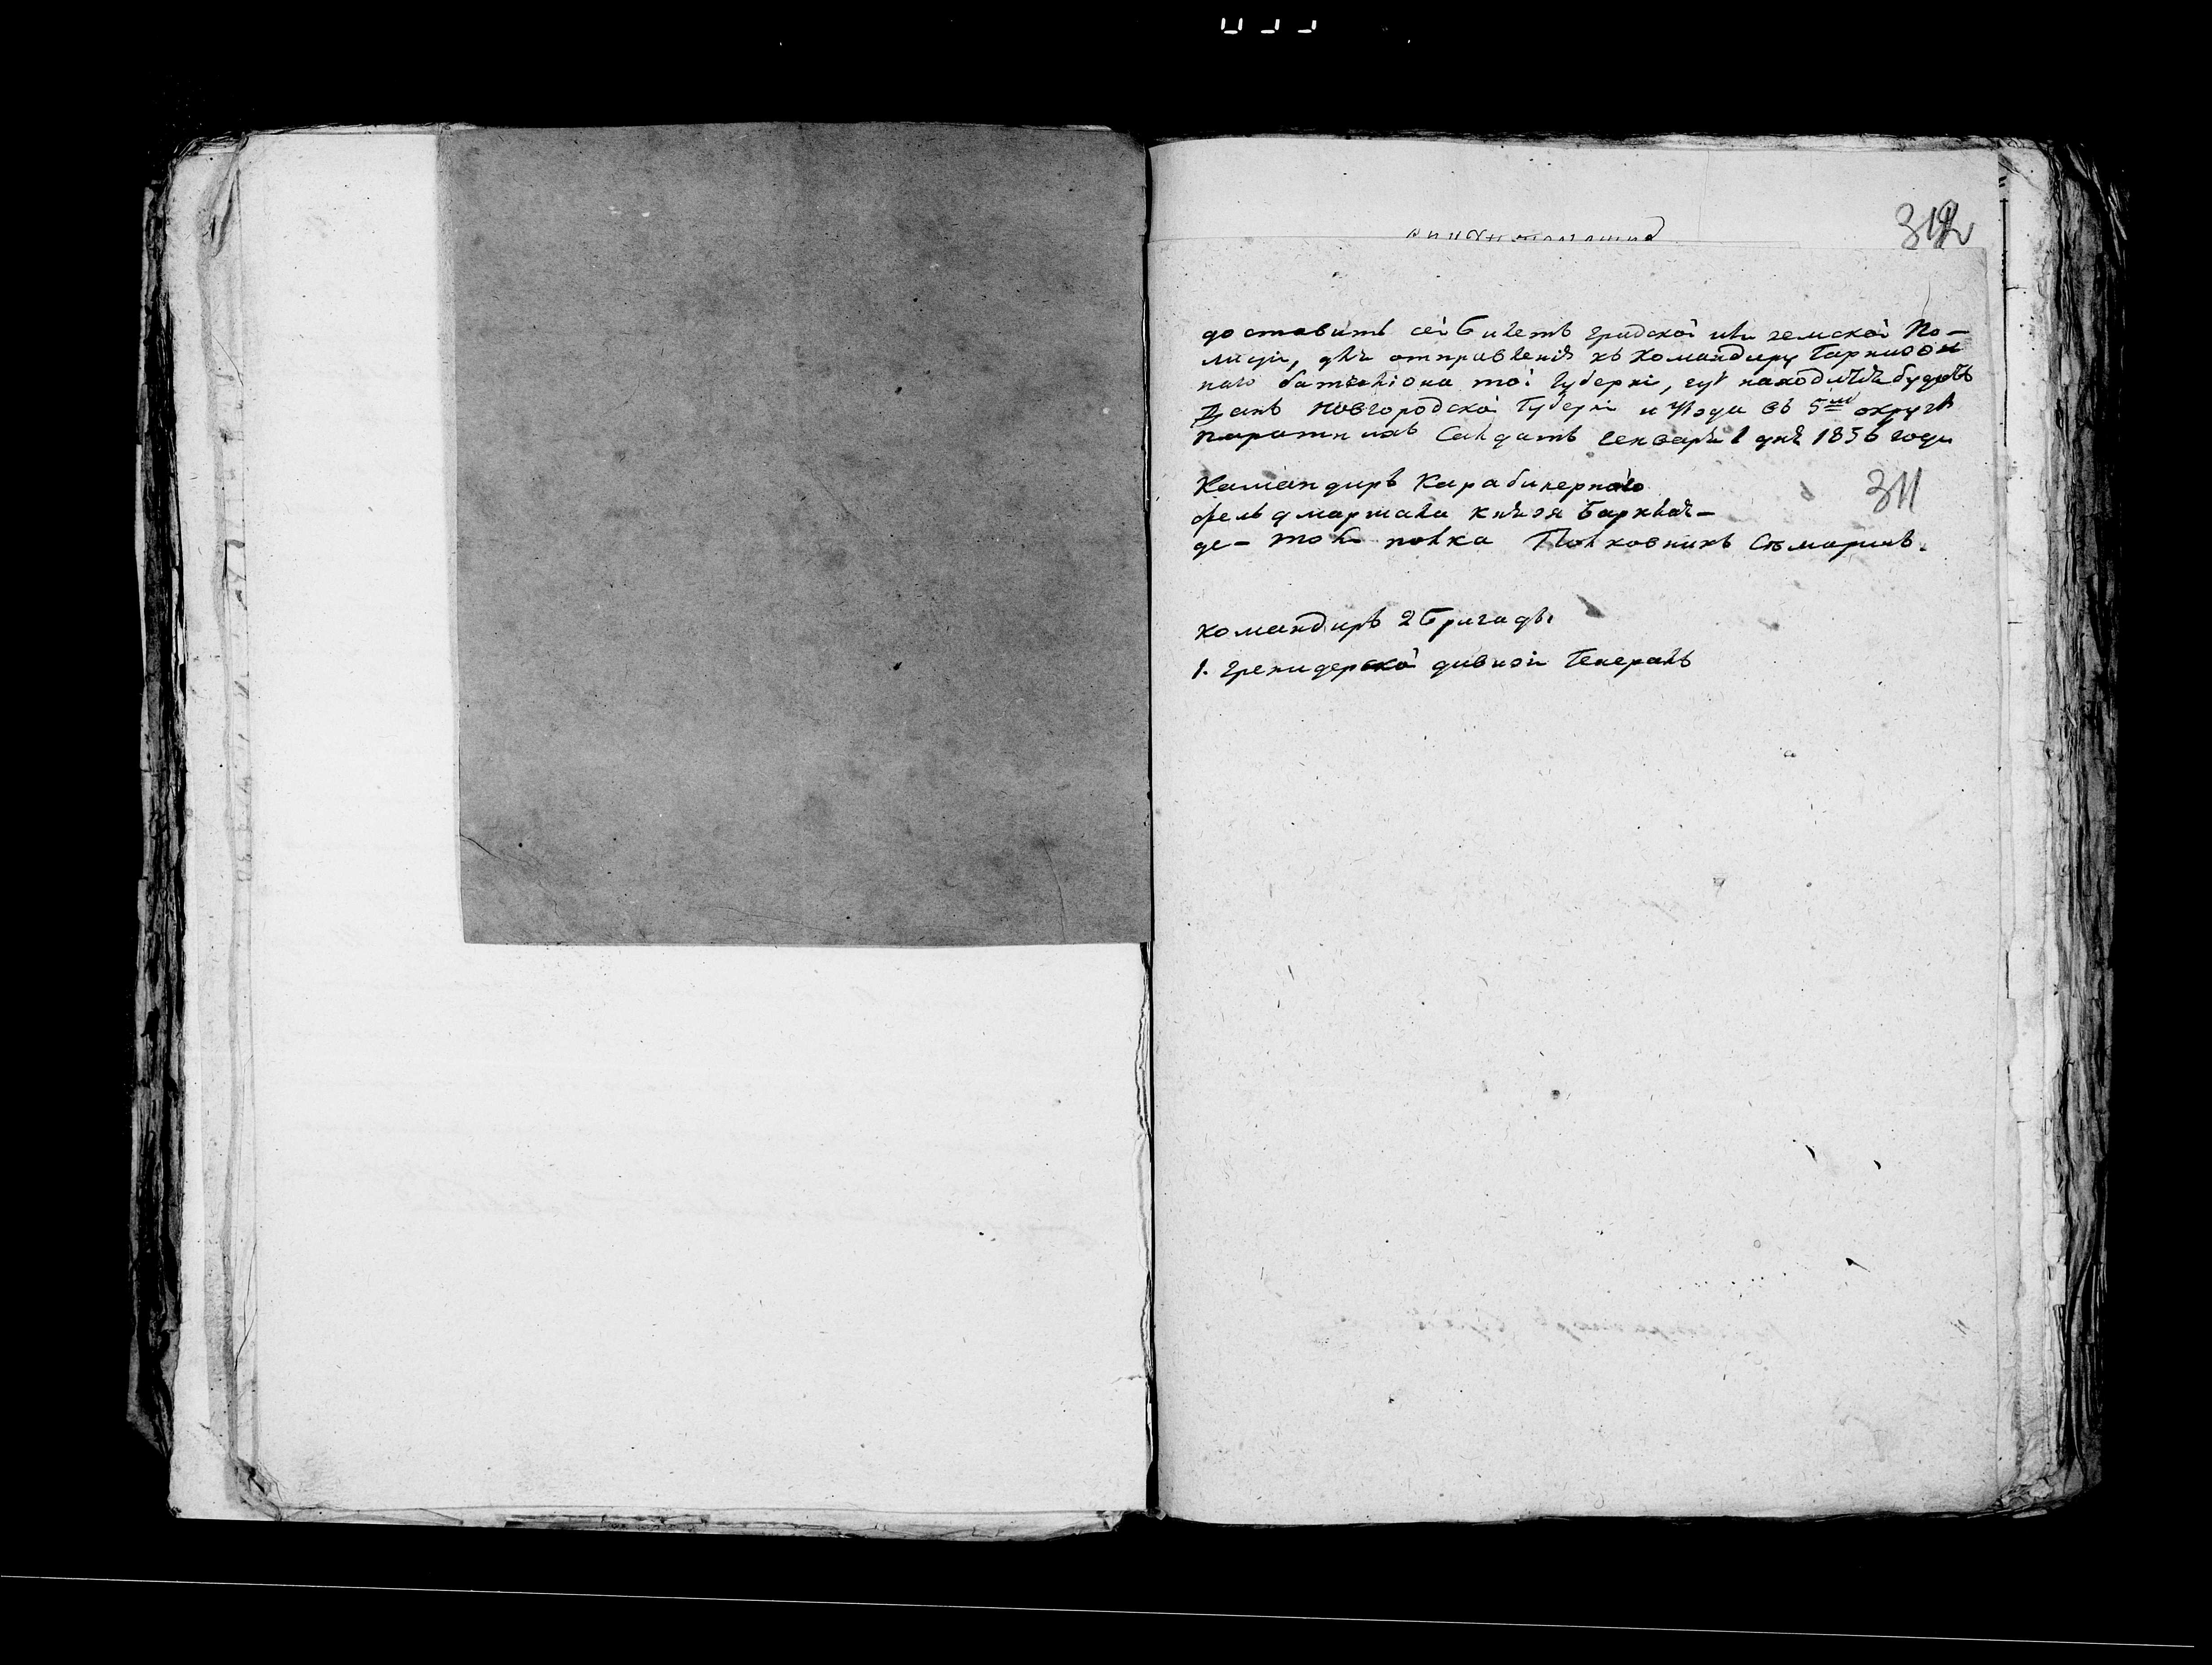 312
доставить сеи билетъ градской или земской По-
лиціи, для отправленія къ командиру Гарнизон
наго баталіона тоі Губерні, гдѣ находитца будетъ
Данъ Новгородскоі Губерні и уѣзда въ 5<sup>мъ</sup> округѣ
пахатныхъ Салдатъ Генваря 1 дня 1836 года
311
Камандиръ Карабинернаго
фельдмаршала князя Барклая-
де-толи полка Полковникъ
командиръ 2 Бригады
1. гренадерскоі дивизіи Генералъ